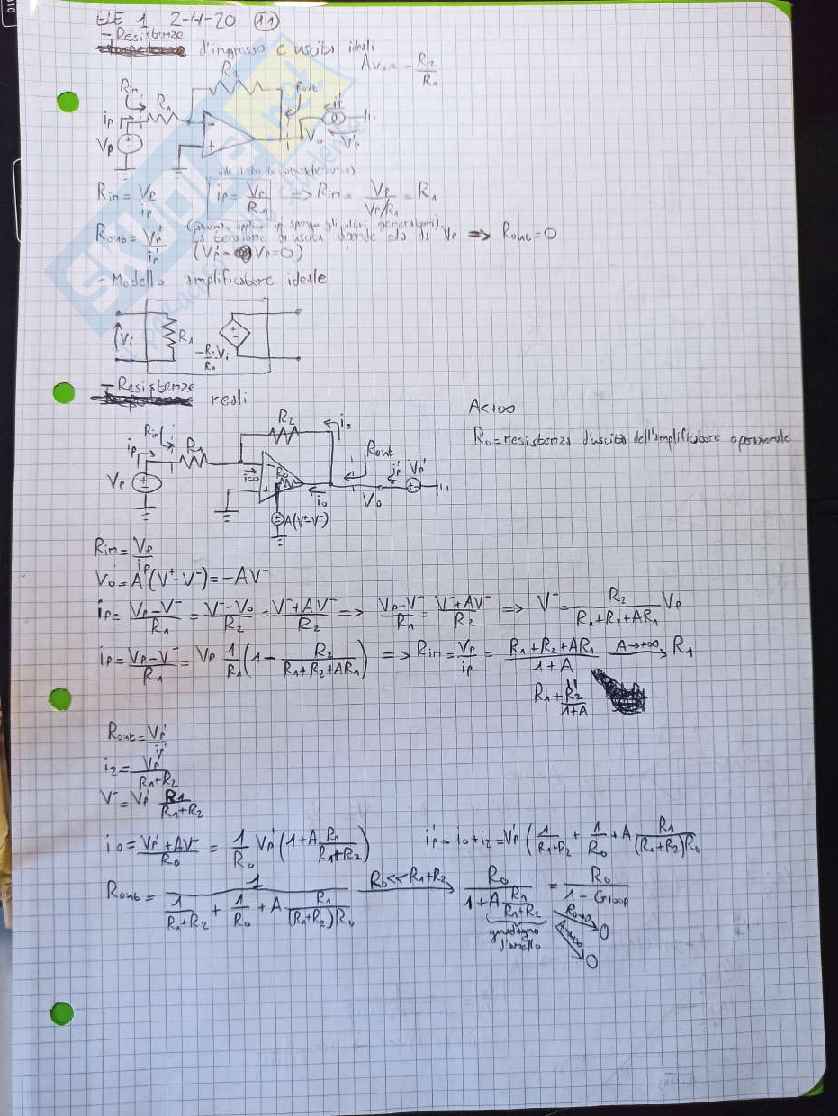 ELE 1 2-4-20 (11)
- Resistenze
d'ingresso e uscita ideali
R2
Rin
R1
ip
Vp
Rout
Vo
Rin = Vp/ip
ip = Vp/R1 => Rin = Vp/(Vp/R1) = R1
Rout = Vp'/ip'
tensione di uscita dipende solo da Vp => Rout = 0
- Modello amplificatore ideale
Vi
R1
- Resistenze reali
A<+∞
R0 = resistenza d'uscita dell'amplificatore operazionale
R2
Rin
R1
ip
Rout
Vp
i=0
R0
i0
V0
ip'
Vp'
A(V+-V-)
Rin = Vp/ip
V0 = A(V+-V-) = -AV-
ip = (Vp-V-)/R1 = (V--V0)/R2 = (V-+AV-)/R2 => (Vp-V-)/R1 = (V-+AV-)/R2 => V- = R2/(R2+R1+AR1) Vp
ip = (Vp-V-)/R1 = Vp 1/R1 (1 - R2/(R1+R2+AR1)) => Rin = Vp/ip = (R1+R2+AR1)/(1+A) A→+∞ R1
R1 + R2/(1+A)
Rout = Vp'/ip'
i2 = Vp'/(R1+R2)
V- = Vp' R1/(R1+R2)
i0 = (Vp'+AV-)/R0 = 1/R0 Vp' (1+A R1/(R1+R2))
ip' = i0+i2 = Vp' (1/(R1+R2) + 1/R0 + A R1/((R1+R2)R0)
Rout = 1/(1/(R1+R2) + 1/R0 + A R1/((R1+R2)R0)) R0<<R1+R2 R0/(1+A R1/(R1+R2)) = R0/(1-Gloop)
guadagno
d'anello
R0→0
0
A→∞
0